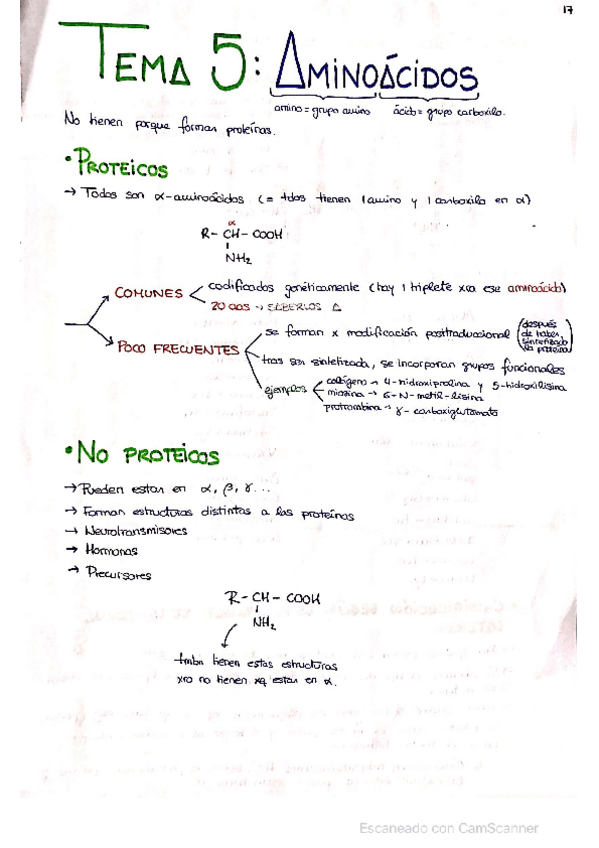 17
TEMA 5: AMINOÁCIDOS
amino = grupo amino ácido = grupo carboxilo.
No tienen porque formar proteínas.
• PROTEICOS
→ Todos son α-aminoácidos (= tdos tienen 1 amino y 1 carboxilo en α)
α
R - CH - COOH
NH₂
COMUNES
codificados genéticamente (hay 1 triplete xra ese aminoácido)
20 aas → SABERLOS
POCO FRECUENTES
se forman x modificación posttraduccional (después de haber sintetizado la proteína)
tras ser sintetizada, se incorporan grupos funcionales
ejemplos
colágeno → 4-hidroxiprolina y 5-hidroxilisina
miosina → 6-N-metil-lisina
protrombina → γ-carboxiglutamato
• NO PROTEICOS
→ Pueden estar en α, β, γ...
→ Forman estructuras distintas a las proteínas
→ Neurotransmisores
→ Hormonas
→ Precursores
R - CH - COOH
NH₂
tmbn tienen estas estructuras
xro no tienen xq estar en α.
Escaneado con CamScanner